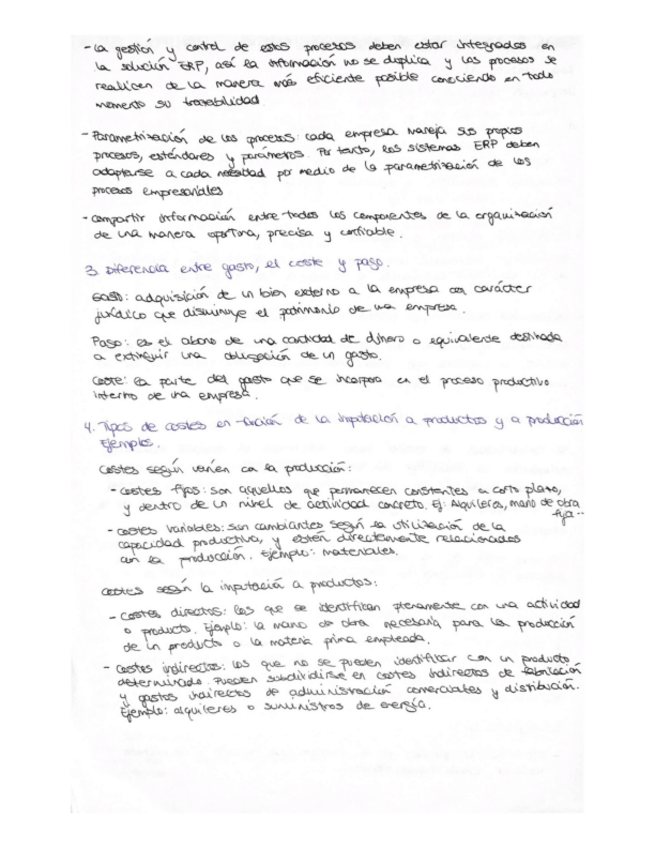 - La gestión y control de estos procesos deben estar integrados en
la solución ERP, así la información no se duplica y los procesos se
realicen de la manera más eficiente posible conociendo en todo
momento su trazabilidad.
- Parametrización de los procesos: cada empresa maneja sus propios
procesos, estándares y parámetros. Por tanto, los sistemas ERP deben
adaptarse a cada necesidad por medio de la parametrización de los
procesos empresariales
- compartir información entre todos los componentes de la organización
de una manera oportuna, precisa y confiable.
3. Diferencia entre gasto, el coste y pago.
Gasto: adquisición de un bien externo a la empresa con carácter
jurídico que disminuye el patrimonio de una empresa.
Pago: es el abono de una cantidad de dinero o equivalente destinada
a extinguir una obligación de un gasto.
Coste: la parte del gasto que se incorpora en el proceso productivo
interno de una empresa.
4. Tipos de costes en función de la imputación a productos y a producción
Ejemplos.
Costes según varíen con la producción:
- costes fijos: son aquellos que permanecen constantes a corto plazo,
y dentro de un nivel de actividad concreto. Ej: Alquileres, mano de obra
fija...
- costes variables: son cambiantes según la utilización de la
capacidad productiva, y están directamente relacionados
con la producción. Ejemplo: materiales.
costes según la imputación a productos:
- Costes directos: los que se identifican plenamente con una actividad
o producto. Ejemplo: la mano de obra necesaria para la producción
de un producto o la materia prima empleada.
- Costes indirectos: los que no se pueden identificar con un producto
determinado. Pueden subdividirse en costes indirectos de fabricación
y gastos indirectos de administración comerciales y distribución.
Ejemplo: alquileres o suministros de energía.